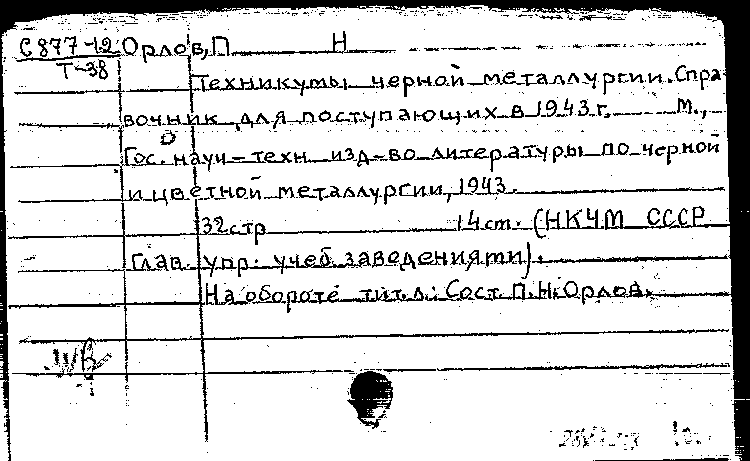 С877-12 Орлов, П. Н
Т-38
Техникумы черной металлургии. Спра-
вочник для поступающих в 1943 г. М.,
Гос. науч-техн. изд-во литературы по черной
и цветной металлургии, 1943.
32 стр 14 см. (НКЧМ СССР
Глав. упр. учеб. заведениями).
На обороте тит. л.: Сост. П.Н. Орлов.